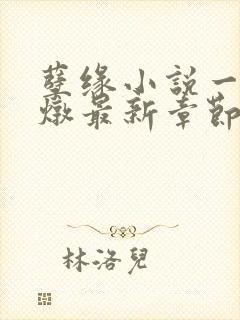 孽缘小說一
燉最新章節
林洛兒